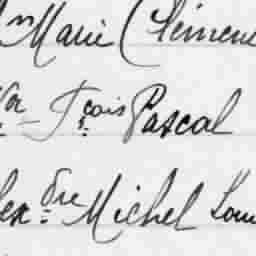 Marie Clémen
Fçois Pascal
lexdre Michel Lou